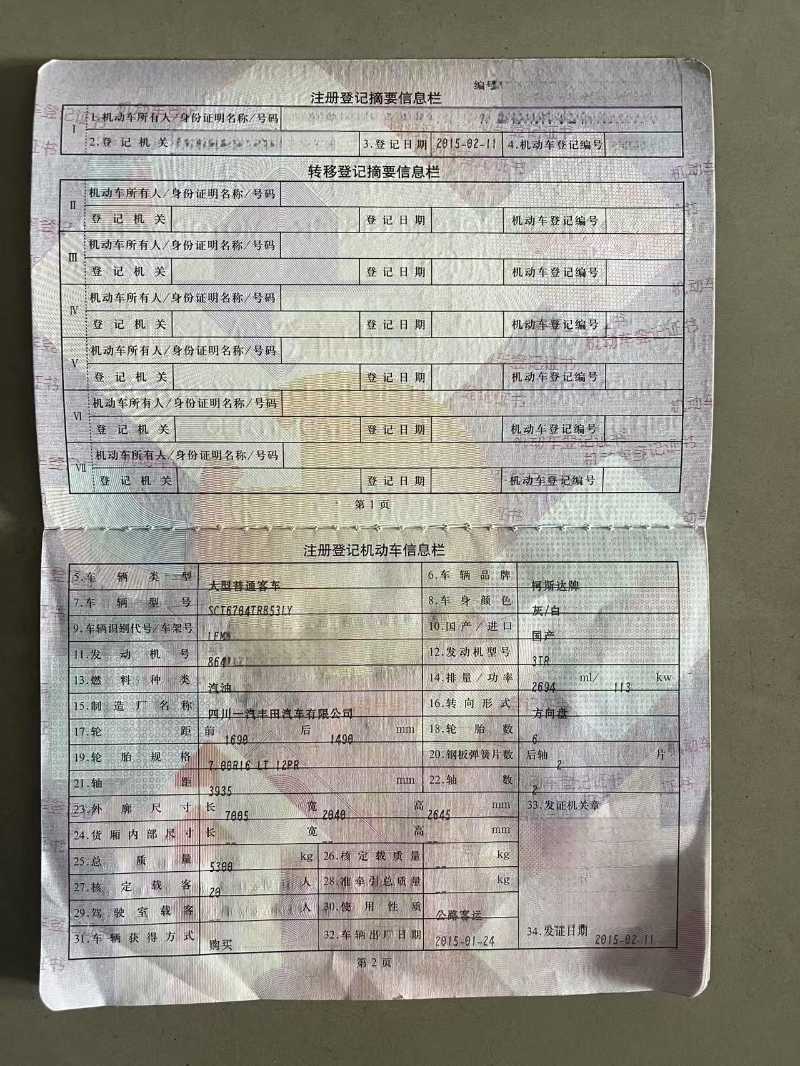 编号
注册登记摘要信息栏
Ⅰ 1.机动车所有人/身份证明名称/号码
2.登记机关 3.登记日期 2015-02-11 4.机动车登记编号
转移登记摘要信息栏
Ⅱ 机动车所有人/身份证明名称/号码
登记机关 登记日期 机动车登记编号
Ⅲ 机动车所有人/身份证明名称/号码
登记机关 登记日期 机动车登记编号
Ⅳ 机动车所有人/身份证明名称/号码
登记机关 登记日期 机动车登记编号
Ⅴ 机动车所有人/身份证明名称/号码
登记机关 登记日期 机动车登记编号
Ⅵ 机动车所有人/身份证明名称/号码
登记机关 登记日期 机动车登记编号
Ⅶ 机动车所有人/身份证明名称/号码
登记机关 登记日期 机动车登记编号
第1页
注册登记机动车信息栏
5.车辆类型 大型普通客车 6.车辆品牌 柯斯达牌
7.车辆型号 SCT6704TRB53LY 8.车身颜色 灰/白
9.车辆识别代号/车架号 10.国产/进口 国产
11.发动机号 12.发动机型号 3TR
13.燃料种类 汽油 14.排量/功率 2694 ml/ 113 kw
15.制造厂名称 四川一汽丰田汽车有限公司 16.转向形式 方向盘
17.轮距 前 1690 后 1490 mm 18.轮胎数 6
19.轮胎规格 7.00R16 LT 12PR 20.钢板弹簧片数 后轴 2 片
21.轴距 3935 mm 22.轴数 2
23.外廓尺寸 长 7005 宽 2040 高 2645 mm 33.发证机关章
24.货厢内部尺寸 长 -- 宽 -- 高 -- mm
25.总质量 5300 kg 26.核定载质量 -- kg
27.核定载客 20 人 28.准牵引总质量 -- kg
29.驾驶室载客 -- 人 30.使用性质 公路客运
31.车辆获得方式 购买 32.车辆出厂日期 2015-01-24 34.发证日期 2015-02-11
第2页